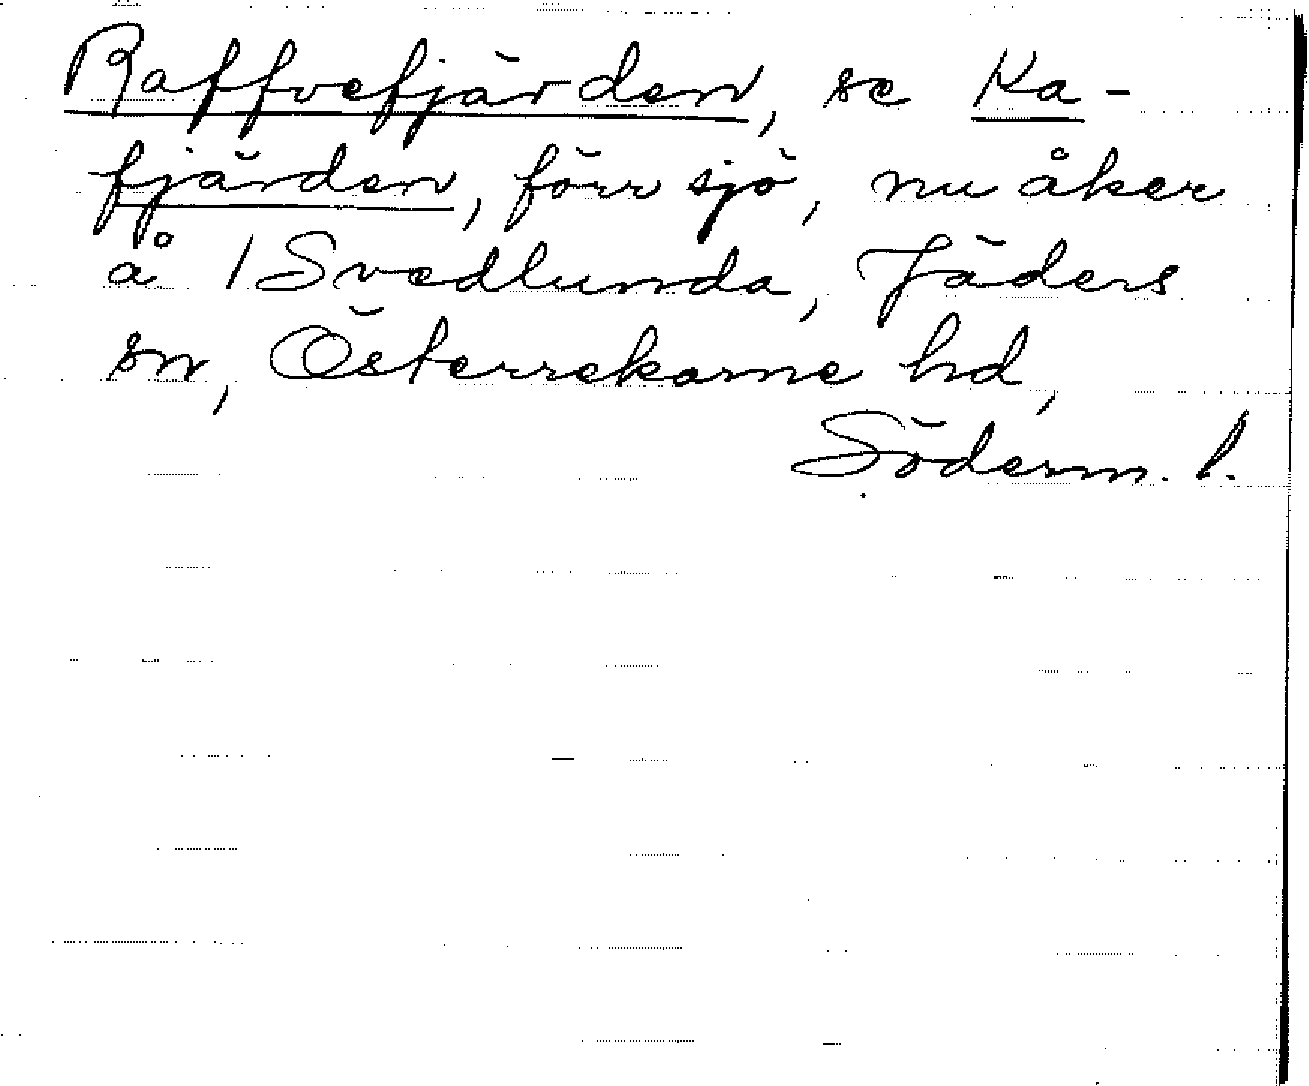 Raffvefjärden, se Ka-
fjärden, förr sjö, nu åker
å 1 Svedlunda, Jäders
sn, Österrekarne hd,
Söderm. l.